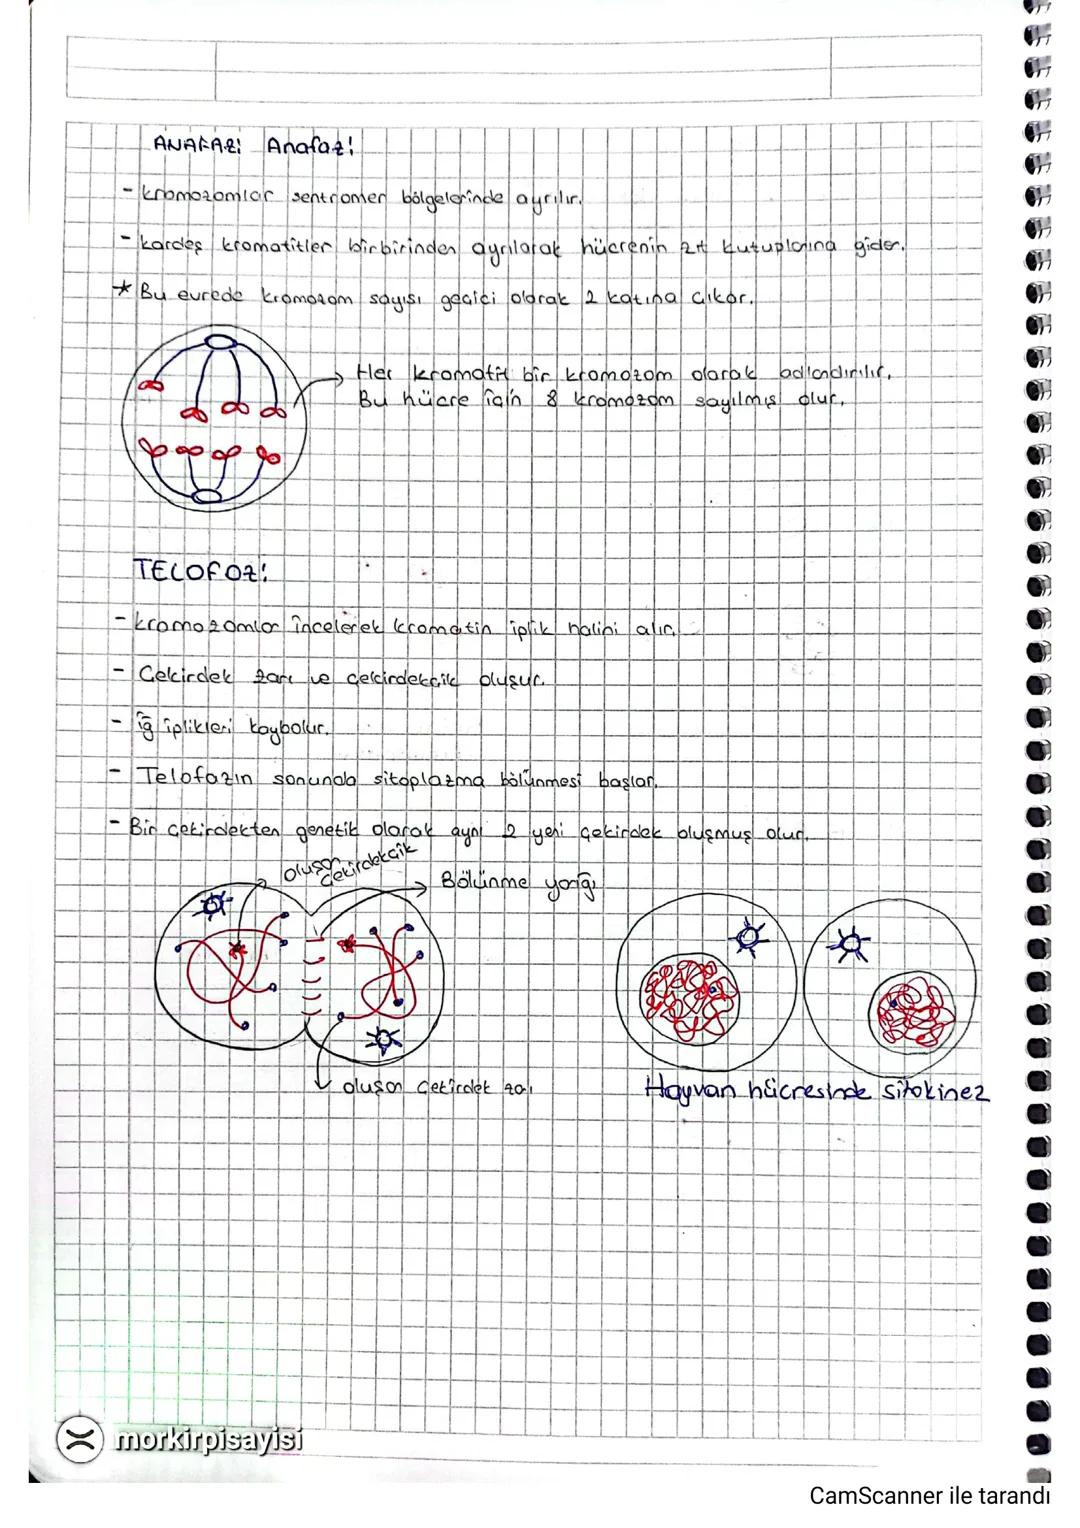 ANAFAZ: Anafaz:
- Kromozomlar sentromer bölgelerinde ayrılır.
- Kardeş kromatitler birbirinden ayrılarak hücrenin zıt kutuplarına gider.
* Bu evrede kromozom sayısı geçici olarak 2 katına çıkar.
Her kromatit bir kromozom olarak adlandırılır.
Bu hücre için 8 kromozom sayılmış olur.
TELOFAZ:
- Kromozomlar incelerek kromatin iplik halini alır.
- Çekirdek zarı ve çekirdekçik oluşur.
- İğ iplikleri kaybolur.
- Telofazın sonunda sitoplazma bölünmesi başlar.
- Bir çekirdekten genetik olarak aynı 2 yeni çekirdek oluşmuş olur.
Oluşan
çekirdekçik
Bölünme yarığı
oluşan çekirdek zarı
Hayvan hücresinde sitokinez
morkirpisayisi
CamScanner ile tarandı